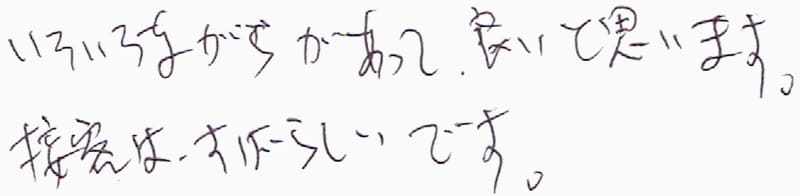 いろいろながらがあって、良いと思います。
接客は、すばらしいです。